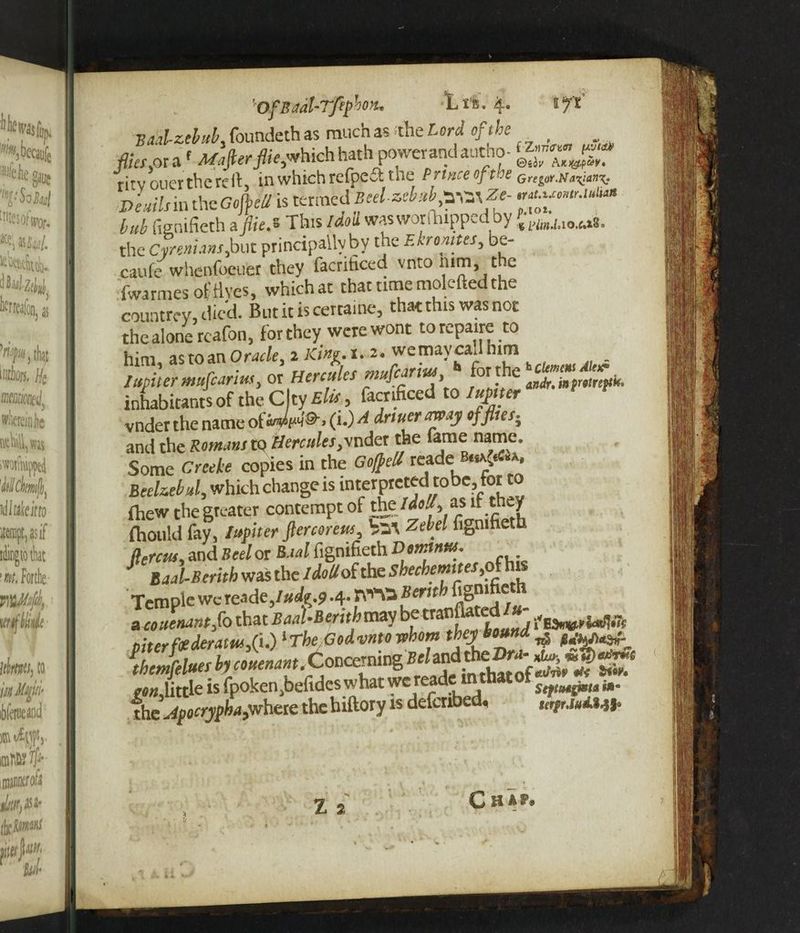 Of Baal-Tsephon. Lib. 4. 171
Baal-zebub, soundeth as much as the Lord of the
flies, or a f Master-flie, which hath power and autho-
rity ouer the rest, in which respect the Prince of the
Deuils in the Gospell is termed Beel-zebub, זבוב Ze-
bub signifieth a flie. g This Idoll was worshipped by
the Cyrenians, but principally by the Ekronites, be-
cause whensoeuer they sacrificed vnto him, the
swarmes of flyes, which at that time molested the
countrey, died. But it is certaine, that this was not
the alone reason, for they were wont to repaire to
him, as to an Oracle, 2 King. 1. 2. we may call him
Iupiter muscarius, or Hercules muscarius, h for the
inhabitants of the City Elis, sacrificed to Iupiter
vnder the name of ἀπόμυιος, (i.) A driuer away of flies;
and the Romans to Hercules, vnder the same name.
Some Greeke copies in the Gospell reade Βεελζεβὺλ,
Beelzebul, which change is interpreted to be, for to
shew the greater contempt of the Idoll, as if they
should say, Iupiter stercoreus, זבל Zebel signifieth
stercus, and Beel or Baal signifieth Dominus.
Baal-Berith was the Idoll of the Shechemites, of his
Temple we reade, Iudg. 9. 4. ברית Berith signifieth
a couenant, so that Baal-Berith may be translated Iu-
piter fœderatus, (i.) i The God vnto whom they bound
themselues by couenant. Concerning Bel and the Dra-
gon, little is spoken, besides what we reade in that of
the Apocrypha, where the history is described.
Z 2 CHAP.
f
Gregor. Nazianz.
orat. 2. contr. Iulian
p. 102.
g Plin. l. 10. c. 28.
h Clemens Alex-
andr. in protreptik.
i
Septuaginta in-
terpr. Iud. 8. 33.